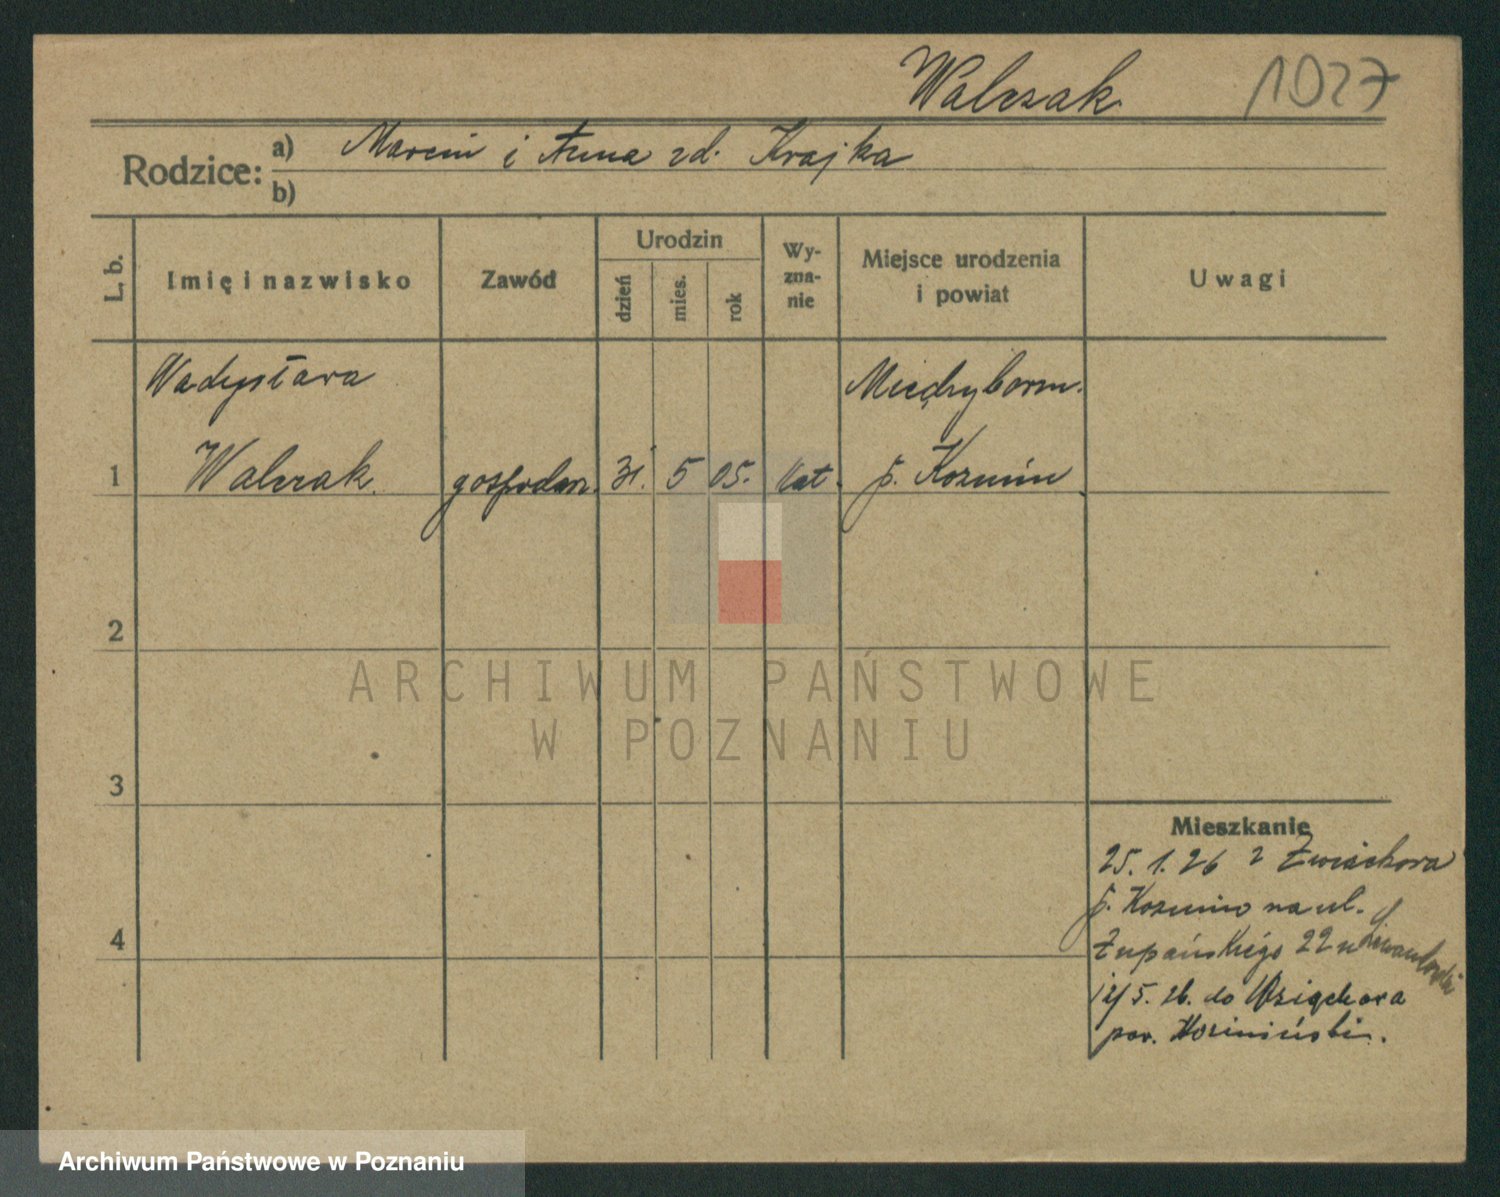 Walczak 1027
Rodzice:
a) Marcin i Anna zd. Krajka
b)
L. b.
Imię i nazwisko
Zawód
Urodzin
dzień
mies.
rok
Wy-
zna-
nie
Miejsce urodzenia
i powiat
Uwagi
Władysława Międzyborm.
1 Walczak gospodarz. 31. 5 05. kat. p. Kozmin
2
3
4
Mieszkanie
25. 1. 26 z
p. Kozmin na ul.
Żupańskiego 22 u
5. 26. do Wziąchowa
pow. Kozmiński.
ARCHIWUM PAŃSTWOWE
W POZNANIU
Archiwum Państwowe w Poznaniu